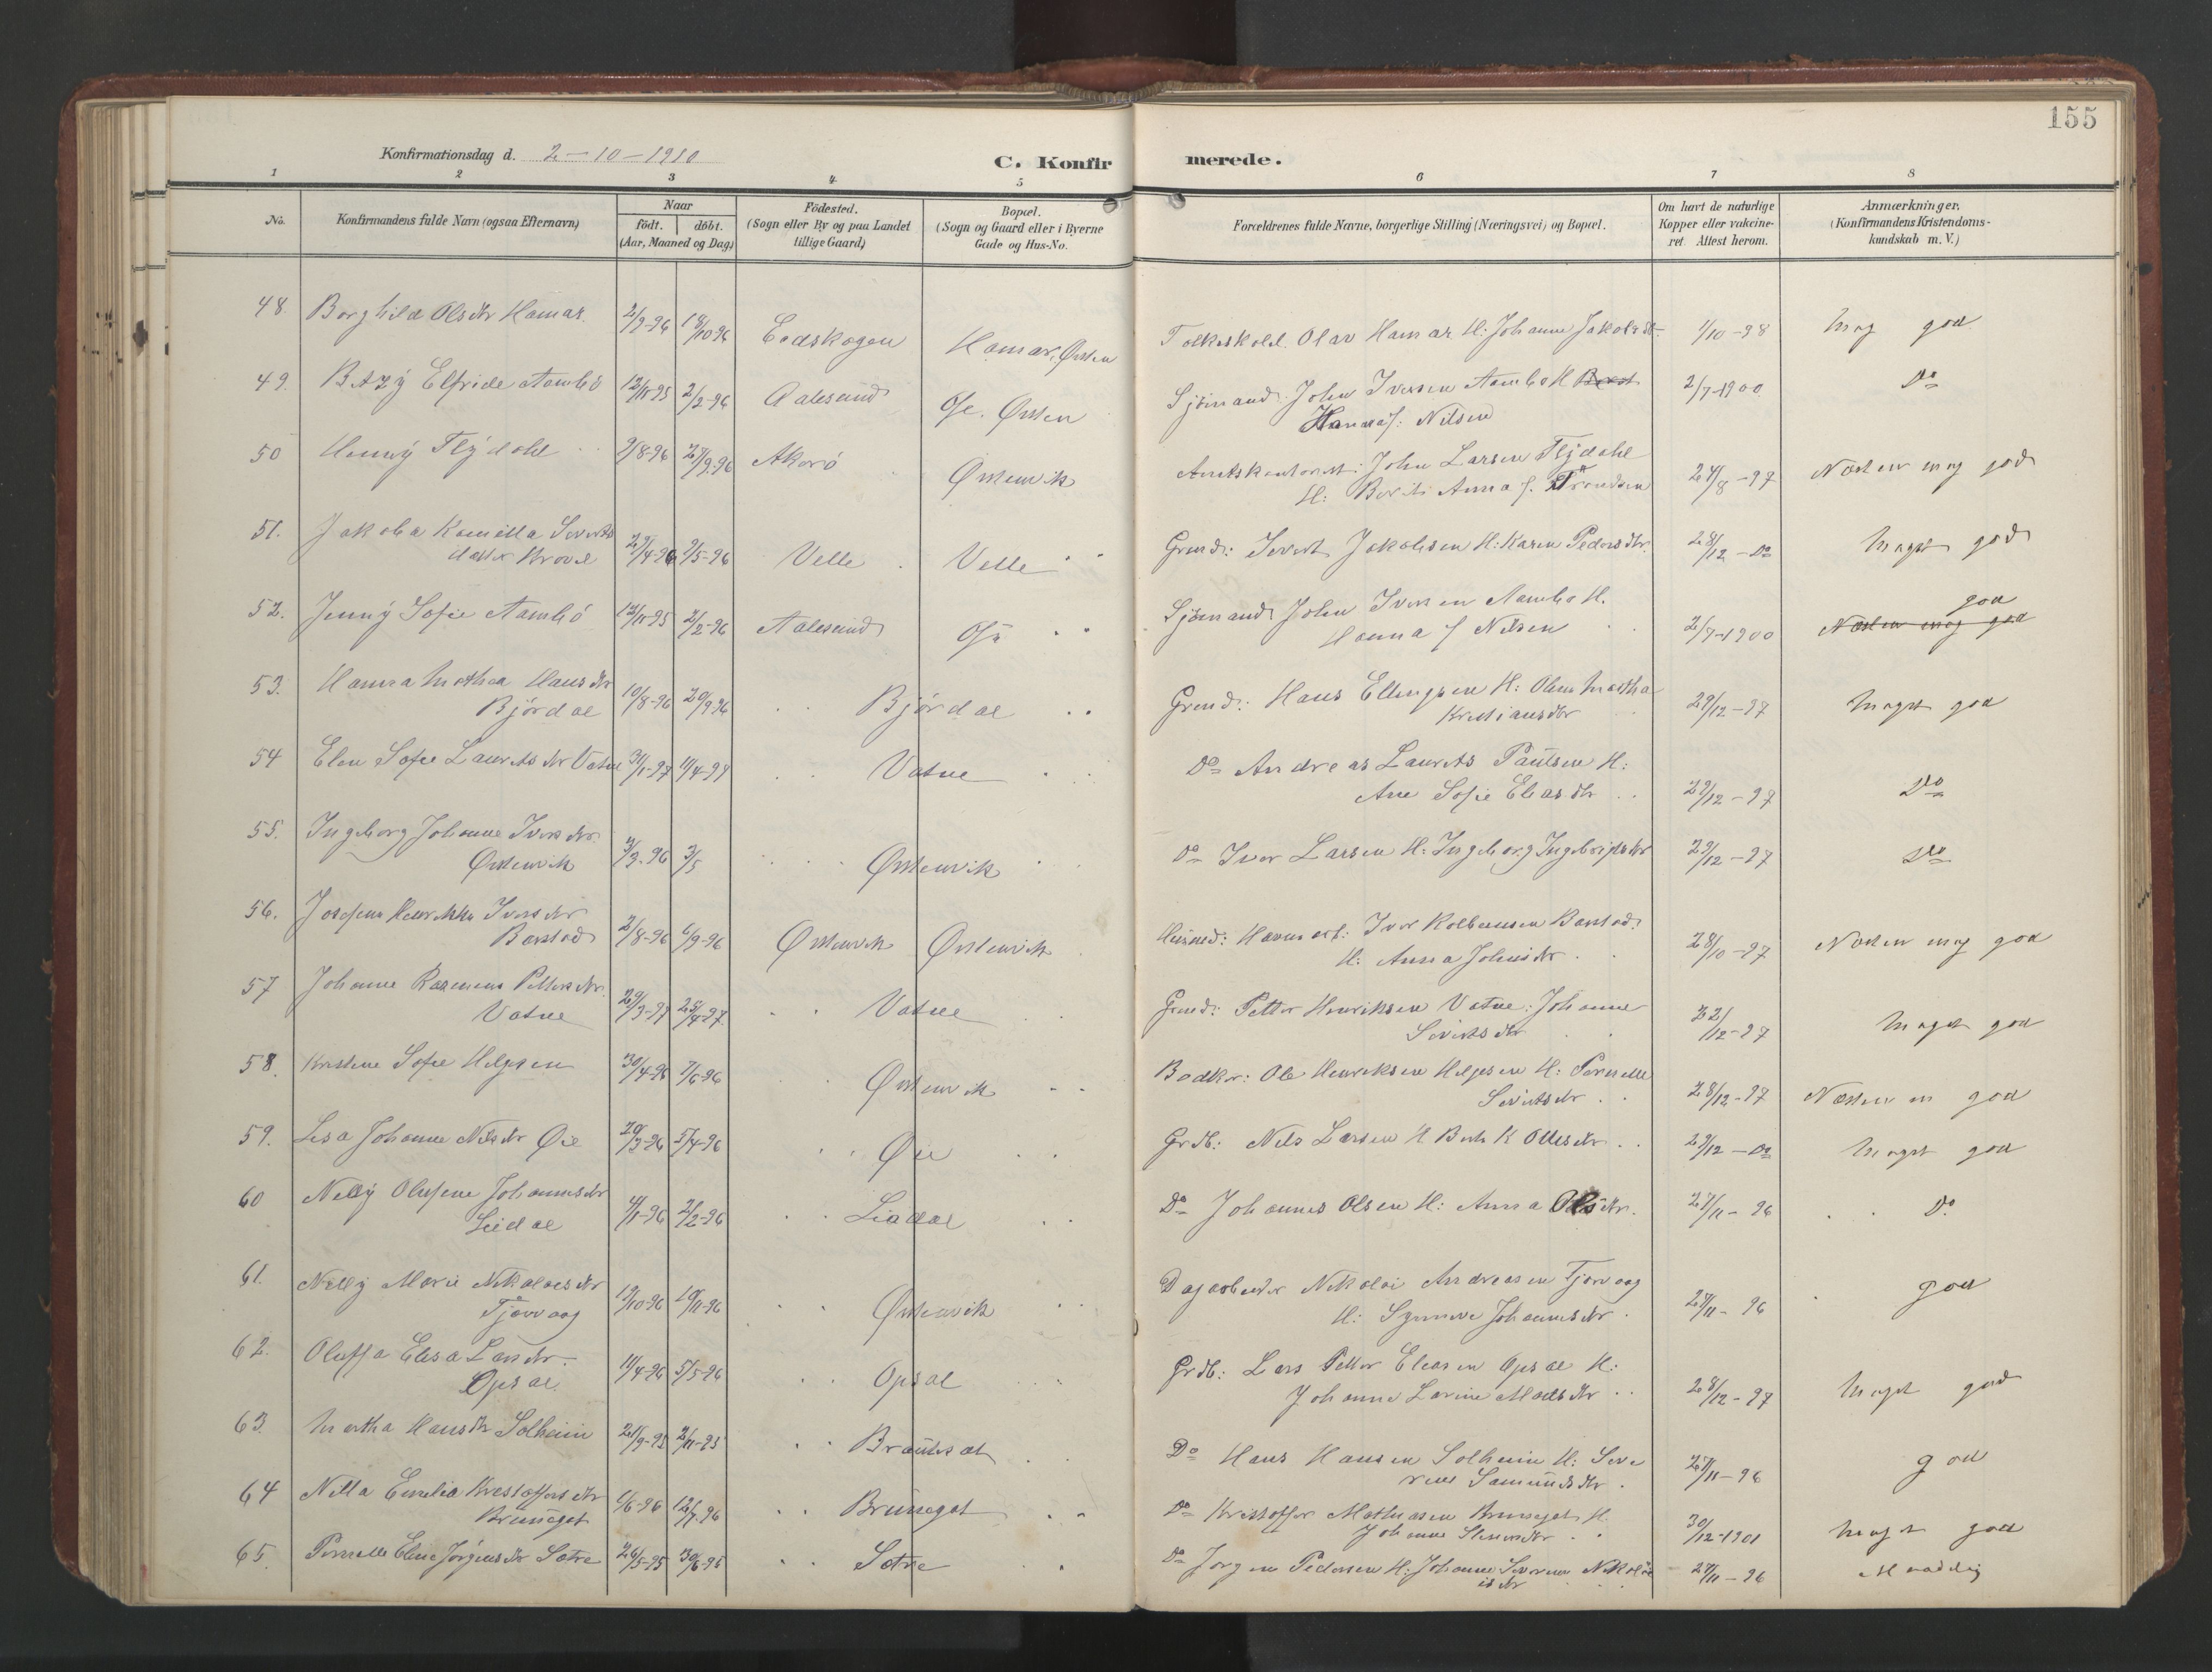 155
Konfirmationsdag d. 2-10-1910
C. Konfirmerede.
1 2 3 4 5 6 7 8
No.
Konfirmandens fulde Navn (ogsaa Efternavn)
Naar
födt. döbt.
(Aar, Maaned og Dag)
Födested.
(Sogn eller By og paa Landet
tillige Gaard)
Bopæl.
(Sogn og Gaard eller i Byerne
Gade og Hus-No.
Forældrenes fulde Navne, borgerlige Stilling (Næringsvei) og Bopæl.
Om havt de naturlige
Kopper eller vakcine-
ret Attest herom.
Anmærkninger.
(Konfirmandens Kristendoms-
kundskab m. V.)
48. Borghild Olsdtr Hamar. 2/9-96 18/10 96 Eidskogen Hamar, Ørsten Olav Hamar H: Johanne Jakobsdtr 1/10-98 Mag god
49. Betzÿ Elfride Aambö 12/11-95 2/2-96 Aalesund Ose. Ørsten Sjömand: John Iversen Aambö H
Hanna f: Nilsen 2/7-1900 Do
50 Henny Flÿdahl 9/8-96 27/9.96 Akerö Ørstenvik Amtskontorist: John Larsen Flÿdahl
H: Berit Anna f. Trondsen 24/8-97 Næsten mag god
51. Jakoba Kamilla Siverts
datter Krøvel 29/4-96 9/5-96 Velle Velle Grmd: Sivert Jakobsen H: Karen Pedersdtr. 28/12-Do Maget god
52. Jenny Sofie Aambö 12/11-95 2/2-96 Aalesund Sjömand John Iversen Aambö H.
Hanna f Nilsen 2/7-1900 Næsten mag god god
53. Hanna Mathea Hansdtr
Björdal 10/8-96 20/9 96 Björdal Grmd: Hans Ellingsen H: Oline Martha
Kristiansdtr 29/12-97 Maget god
54 Elen Sofie Lauritsdtr Vatne 31/1-97 11/4-97 Vatne Do Andreas Laurits Paulsen H:
Ane Sofie Eliasdtr 29/12-97 Do
55. Ingeborg Johanne Iversdtr.
Ørstenvik 3/3-96 3/5 Ørstenvik Do Iver Larsen H: Ingeborg Ingebrigtsdtr 29/12-97 Do
56. Josefine Henrikke Iversdtr
Barstad 2/8-96 6/9-96 Ørstenvik Ørstenvik Husmd: Iver Kolbensen Barstad.
H: Anna Johnsdtr 28/10-97 Næsten mag god
57 Johanne Rasmine Pettersdtr.
Vatne 29/3-97 25/4-97 Vatne Grmd: Petter Henriksen Vatne: Johanne
Sivertsdtr 22/12-97 Maget god
58. Kristine Sofie Helgesen 30/4-96 7/6-96 Ørstenvik Bødker: Ole Henriksen Helgesen H: Pernelle
Sivertsdtr 28/12-97 Næsten m god
59. Lisa Johanne Nilsdtr Øie 20/3-96 5/4-96 Øie Grdb: Nils Larsen H Berte K Ollesdtr 29/12-Do Maget god
60 Nelly Olufine Johannesdtr
Liedal 4/1-96 2/2-96 Liadal Do Johannes Olsen H: Anna Olsdtr. 27/11-96 Do
61. Nelly Marie Nikolaesdtr
Tjørvaag 19/10-96 Ørstenvik Dagarbeider Nikolai Andreasen Tjørvaag
H: Synneve Johannesdtr 27/11-96 god
62. Oluffa Elisa Larsdtr.
Opsal. 11/4-96 5/5-96 Opsal Grdb: Lars Petter Eliasen Opsal H:
Johanne Lovine Madsdtr 28/12-97 Maget god
63. Martha Hansdtr Solheim 21/9-95 2/11-95 Do Hans Hansen Solheim H: Seve
rine Samundsdtr. 27/11-96 god
64 Nilla Emilie Kristoffersdtr
Brunegot 6/6-96 12/7-96 Brunegot Do Kristoffer Mathiasen Brunegot H.
Johanne 30/12-1901 Maget god
65. Pernelle Eline Jörgensdtr Sætre 26/5-95 30/6-95 Sætre Do Jörgen Pedersen H: Johanne Severine Nikolai
isdtr 27/11-96 Maadelig